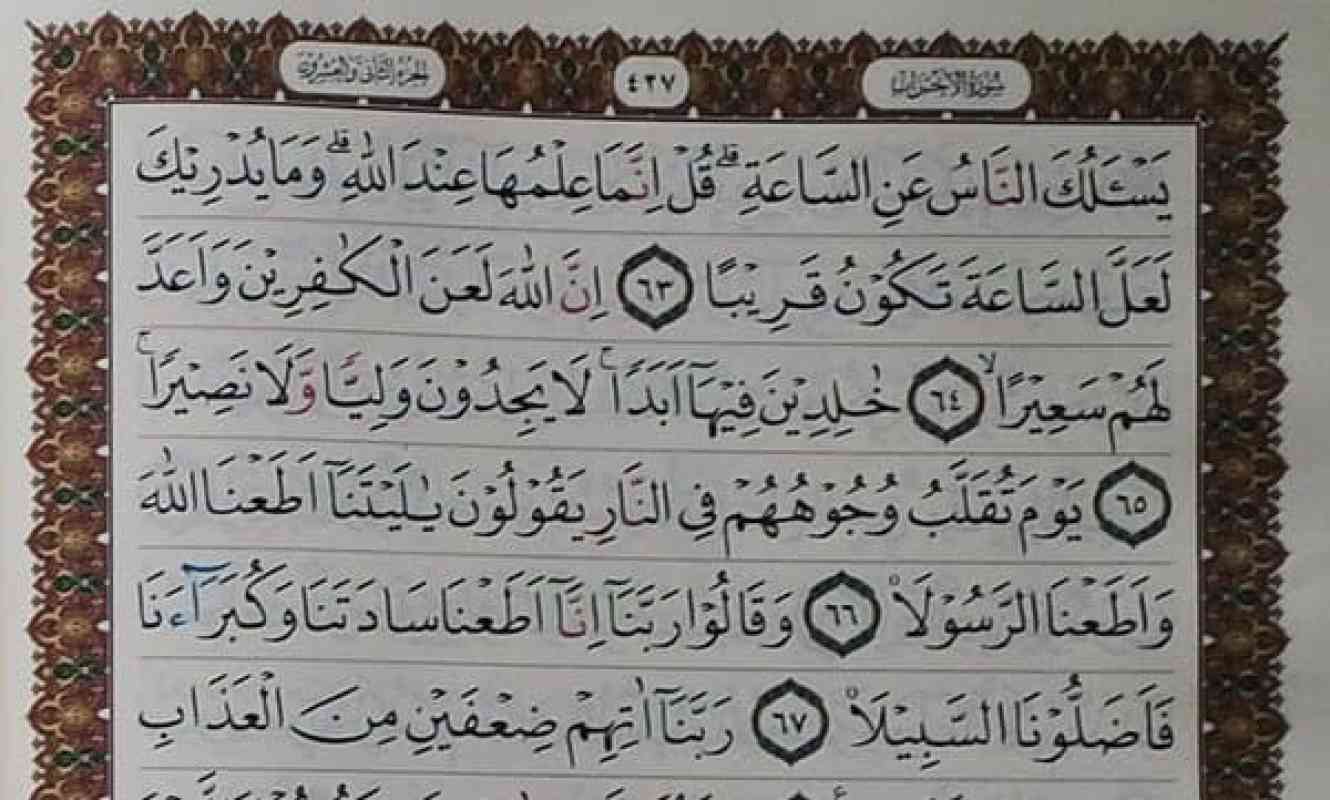 سُورَةُ الْاَحْزَابِ ٤٢٧ الجزء الثاني والعشرون
يَسْـَٔلُكَ النَّاسُ عَنِ السَّاعَةِ ۗ قُلْ اِنَّمَا عِلْمُهَا عِنْدَ اللّٰهِ ۗ وَمَا يُدْرِيْكَ
لَعَلَّ السَّاعَةَ تَكُوْنُ قَرِيْبًا ٦٣ اِنَّ اللّٰهَ لَعَنَ الْكٰفِرِيْنَ وَاَعَدَّ
لَهُمْ سَعِيْرًا ۙ ٦٤ خٰلِدِيْنَ فِيْهَآ اَبَدًا ۚ لَا يَجِدُوْنَ وَلِيًّا وَّلَا نَصِيْرًا ۚ
٦٥ يَوْمَ تُقَلَّبُ وُجُوْهُهُمْ فِى النَّارِ يَقُوْلُوْنَ يٰلَيْتَنَآ اَطَعْنَا اللّٰهَ
وَاَطَعْنَا الرَّسُوْلَا۠ ٦٦ وَقَالُوْا رَبَّنَآ اِنَّآ اَطَعْنَا سَادَتَنَا وَكُبَرَآءَنَا
فَاَضَلُّوْنَا السَّبِيْلَا۠ ٦٧ رَبَّنَآ اٰتِهِمْ ضِعْفَيْنِ مِنَ الْعَذَابِ